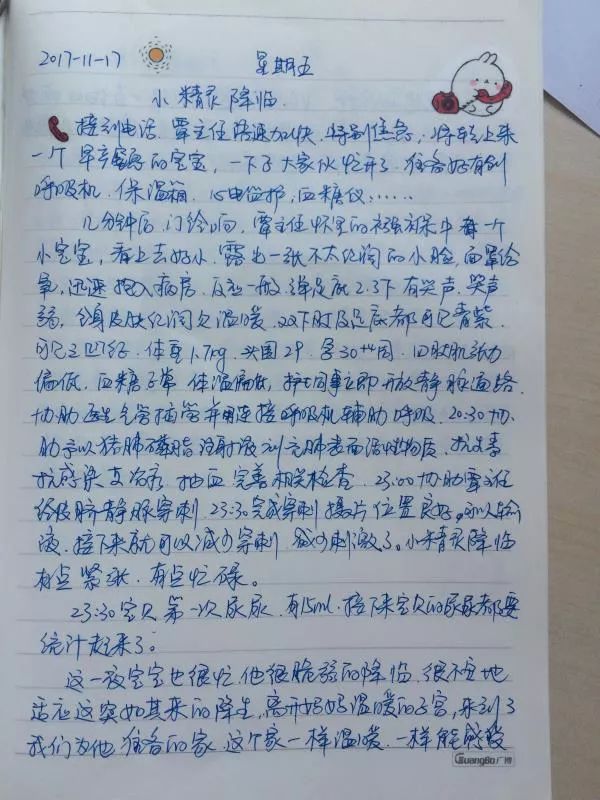 2017-11-17 星期五
小精灵降临.
接到电话 覃主任语速加快, 特别焦急, 将转上来
一个早产的宝宝, 一下子大家伙忙开了. 准备好有创
呼吸机. 保温箱. 心电监护, 血糖仪……
几分钟后, 门铃响, 覃主任怀里的襁褓中有一个
小宝宝, 看上去好小. 露出一张不太红润的小脸, 面罩给
氧, 迅速抱入病房. 反应一般. 弹足底2.3下有哭声. 哭声
弱, 全身皮肤红润欠温暖. 双下肢及足底都可见青紫.
可见三凹征. 体重1.7kg. 头围29. 孕30+4周. 四肢肌张力
偏低. 血糖正常 体温偏低, 护士同事立即开放静脉通路.
协助医生气管插管并用连接呼吸机辅助呼吸. 20:30协
助予以猪肺磷脂注射液补充肺表面活性物质.
抗感染支治疗 抽血 完善相关检查. 23:00协助覃主任
经皮脐静脉穿刺. 23:30完成穿刺 摄片位置良好。可以输
液. 接下来就可以减少穿刺 减少刺激了。小精灵降临
有点紧张. 有点忙碌。
23:30宝贝第一次尿尿. 有15ml. 接下来宝贝的尿尿都要
统计起来了。
这一夜宝宝也很忙. 他很脆弱的降临. 很不安地
适应这突如其来的降生, 离开妈妈温暖的子宫, 来到了
我们为他准备的家. 这个家一样温暖. 一样能感受
GuangBo广博